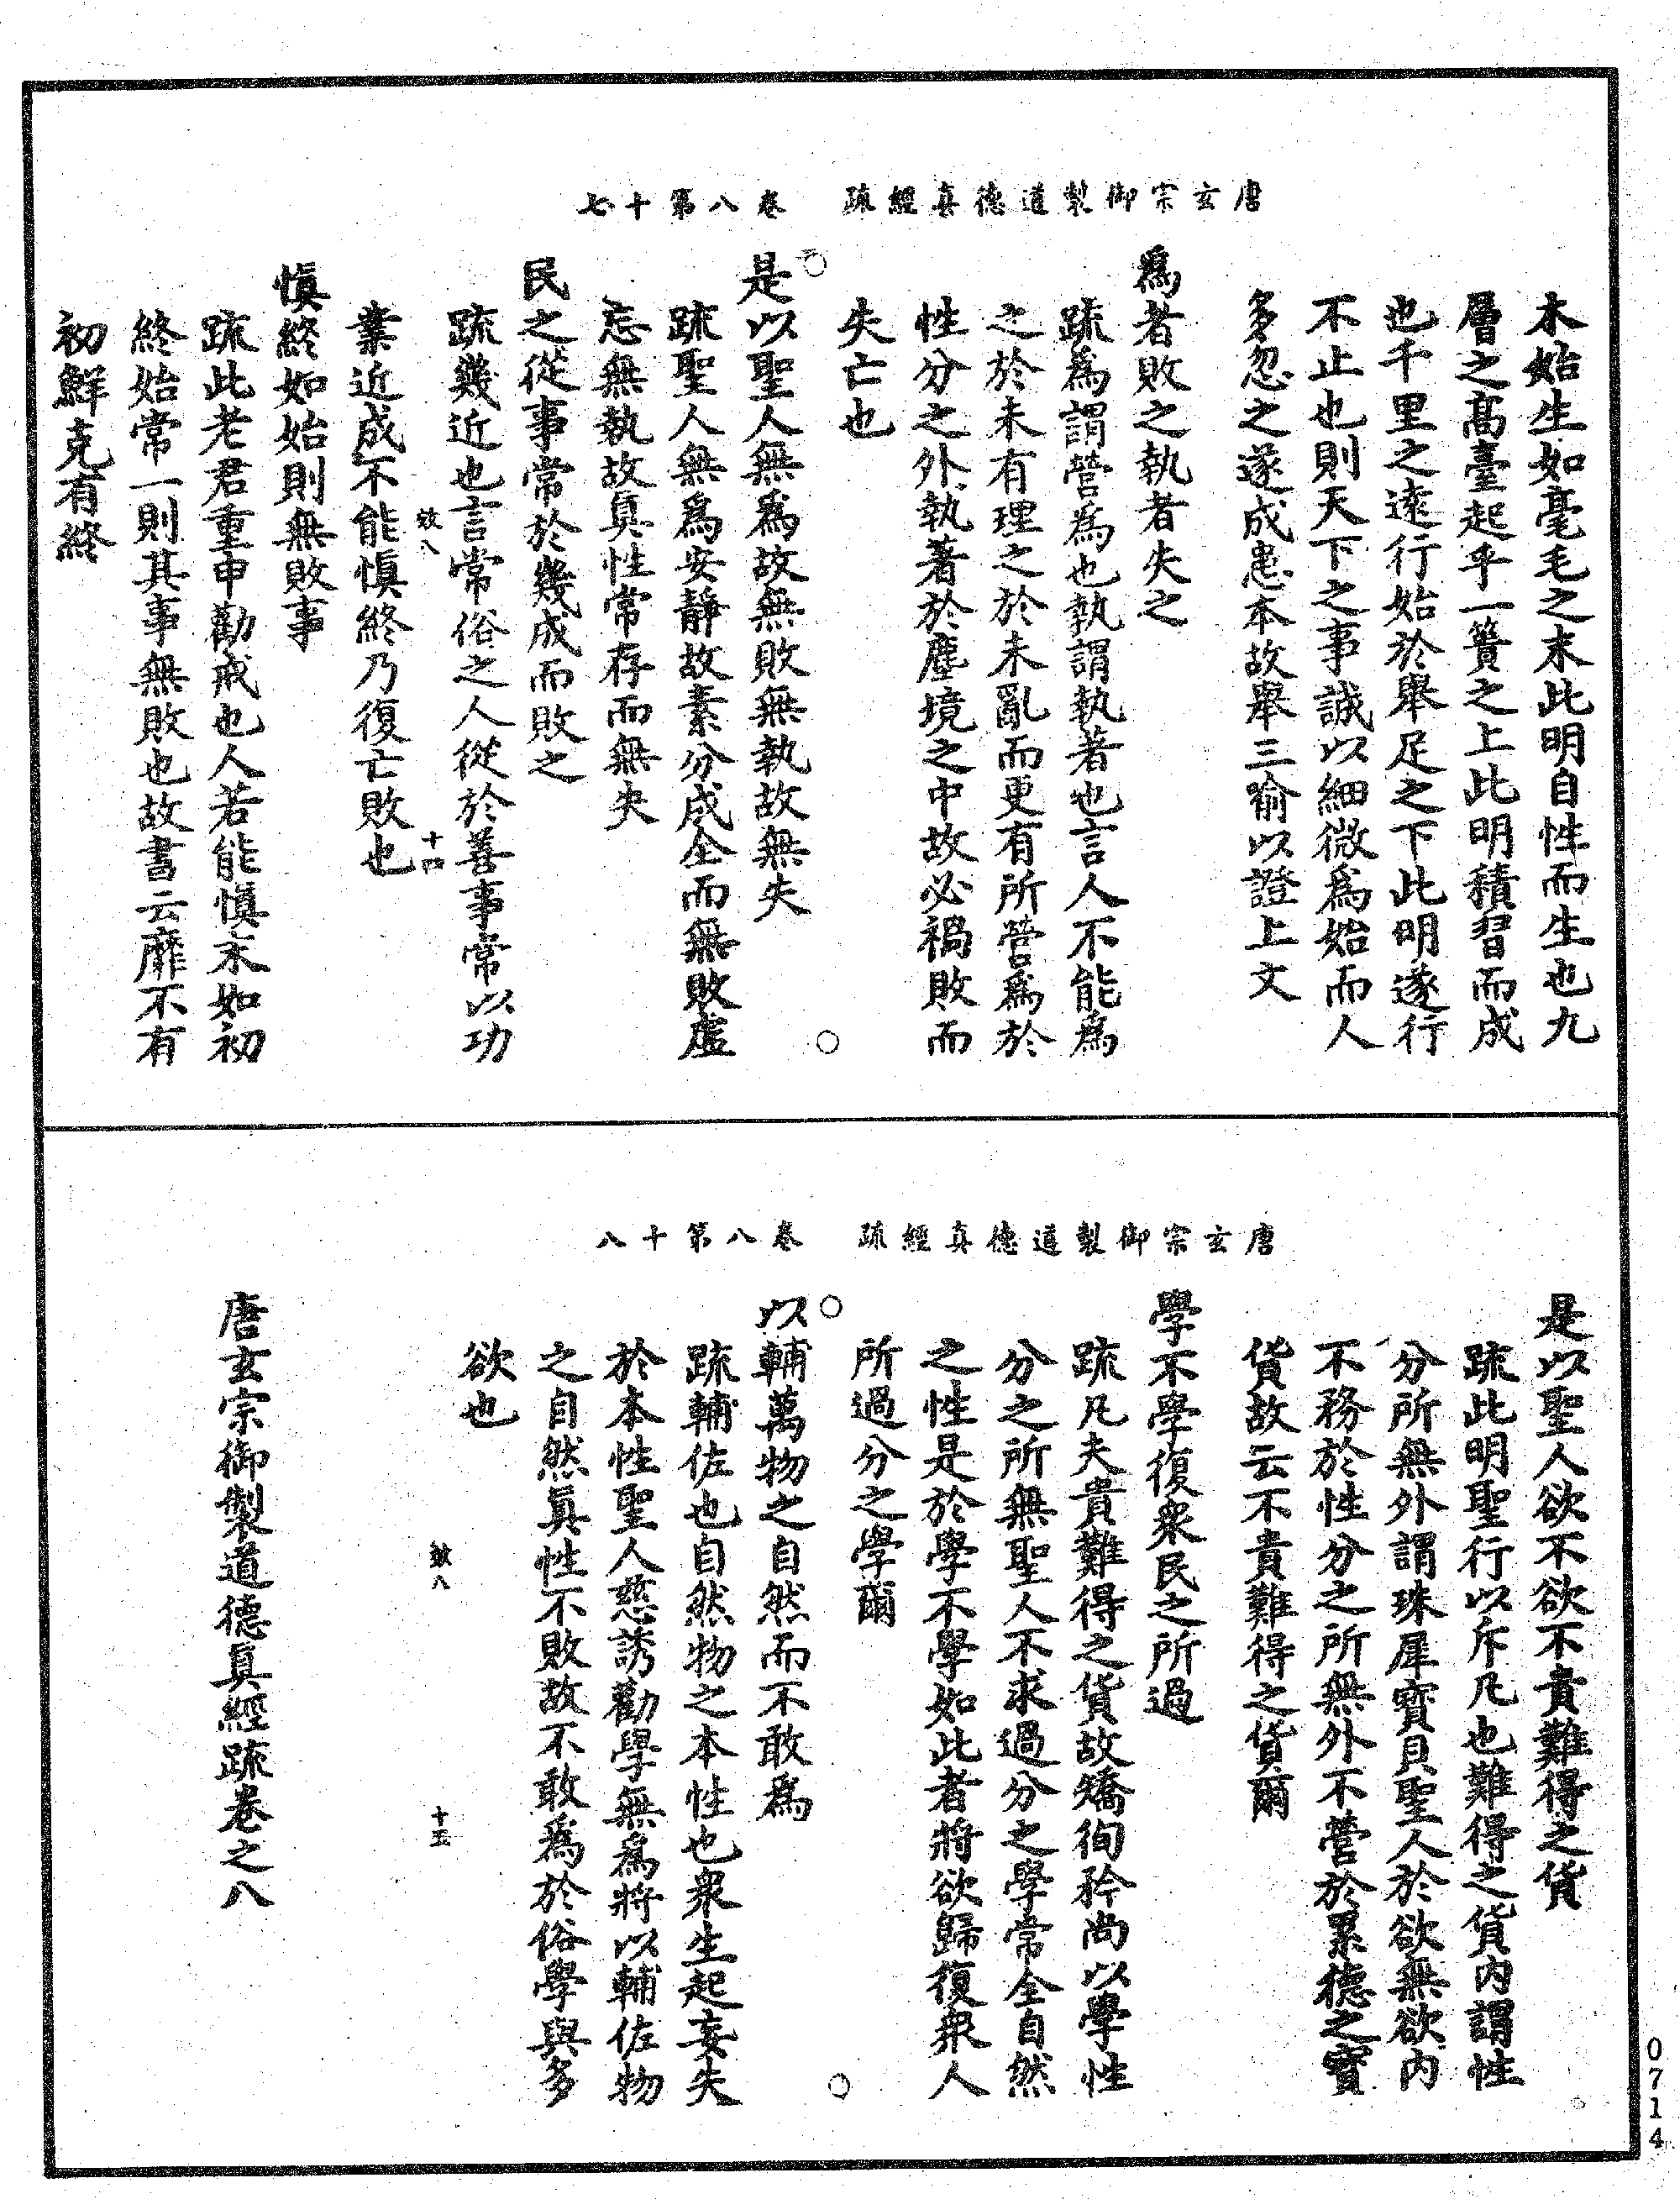 唐玄宗御製道德真經疏　卷八第十七
木始生如毫毛之末此明自性而生也九
層之高臺起乎一簣之上此明積習而成
也千里之遠行始於舉足之下此明遂行
不止也則天下之事誠以細微爲始而人
多忽之遂成患本故舉三喻以證上文
爲者敗之執者失之
疏爲謂營爲也執謂執著也言人不能爲
之於未有理之於未亂而更有所營爲於
性分之外執著於塵境之中故必禍敗而
失亡也
是以聖人無爲故無敗無執故無失
疏聖人無爲安靜故素分成全而無敗虛
忘無執故眞性常存而無失
民之從事常於幾成而敗之
疏幾近也言常俗之人從於善事常以功
效八　十四
業近成不能愼終乃復亡敗也
愼終如始則無敗事
疏此老君重申勸戒也人若能愼末如初
終始常一則其事無敗也故書云靡不有
初鮮克有終
唐玄宗御製道德真經疏　卷八第十八
是以聖人欲不欲不貴難得之貨
疏此明聖行以斥凡也難得之貨內謂性
分所無外謂珠犀寶貝聖人於欲無欲內
不務於性分之所無外不營於累德之寶
貨故云不貴難得之貨爾
學不學復衆民之所過
疏凡夫貴難得之貨故矯徇矜尚以學性
分之所無聖人不求過分之學常全自然
之性是於學不學如此者將欲歸復衆人
所過分之學爾
以輔萬物之自然而不敢爲
疏輔佐也自然物之本性也衆生起妄失
於本性聖人慈誘勸學無爲將以輔佐物
之自然眞性不敗故不敢爲於俗學與多
欲也
效八　十五
唐玄宗御製道德眞經疏卷之八
0714